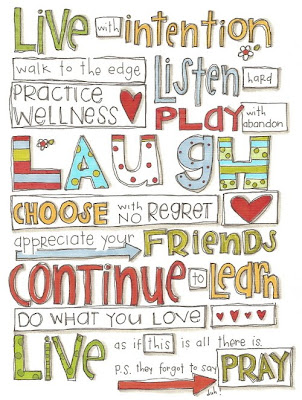 Live with intention
walk to the edge
Listen hard
PRACTICE WELLNESS
PLAY with abandon
LAUGH
CHOOSE with NO REGRET
appreciate your FRIENDS
CONTINUE to Learn
DO WHAT YOU LOVE
Live as if this is all there is.
P.S. they forgot to say PRAY
duh!